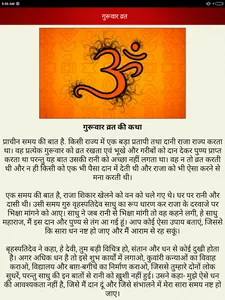 9:55 AM
गुरूवार व्रत
ॐ
गुरूवार व्रत की कथा
प्राचीन समय की बात है. किसी राज्य में एक बड़ा प्रतापी तथा दानी राजा राज्य करता
था। वह प्रत्येक गुरूवार को व्रत रखता एवं भूखे और गरीबों को दान देकर पुण्य प्राप्त
करता था परन्तु यह बात उसकी रानी को अच्छा नहीं लगता था। वह न तो व्रत करती
थी और न ही किसी को एक भी पैसा दान में देती थी और राजा को भी ऐसा करने से
मना करती थी।
एक समय की बात है, राजा शिकार खेलने को वन को चले गए थे। घर पर रानी और
दासी थी। उसी समय गुरु वृहस्पतिदेव साधु का रूप धारण कर राजा के दरवाजे पर
भिक्षा मांगने को आए। साधु ने जब रानी से भिक्षा मांगी तो वह कहने लगी, हे साधु
महाराज, मैं इस दान और पुण्य से तंग आ गई हूं। आप कोई ऐसा उपाय बताएं, जिससे
कि सारा धन नष्ट हो जाए और मैं आराम से रह सकूं।
बृहस्पतिदेव ने कहा, हे देवी, तुम बड़ी विचित्र हो, संतान और धन से कोई दुखी होता
है। अगर अधिक धन है तो इसे शुभ कार्यों में लगाओ, कुवांरी कन्याओं का विवाह
कराओ, विद्यालय और बाग़-बगीचे का निर्माण कराओ, जिससे तुम्हारे दोनों लोक
सुधरें, परन्तु साधु की इन बातों से रानी को खुशी नहीं हुई। उसने कहा- मुझे ऐसे धन
की आवश्यकता नहीं है, जिसे मैं दान दूं और जिसे संभालने में मेरा सारा समय नष्ट हो
जाए।